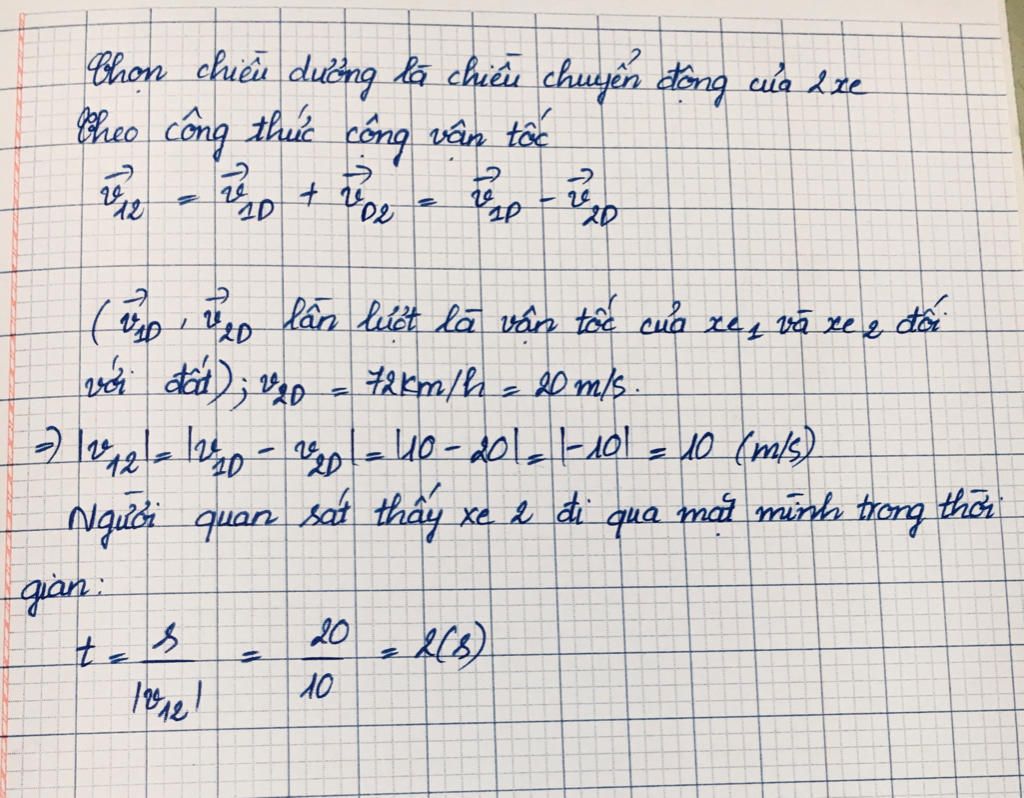 Chọn chiều dương là chiều chuyển động của 2 xe
Theo công thức cộng vận tốc
v⃗₁₂ = v⃗₁D + v⃗D₂ = v⃗₁D - v⃗₂D
(v⃗₁D, v⃗₂D lần lượt là vận tốc của xe 1 và xe 2 đối
với đất); v₂D = 72km/h = 20 m/s.
⇒ |v₁₂| = |v₁D - v₂D| = |10 - 20| = |-10| = 10 (m/s)
Người quan sát thấy xe 2 đi qua mặt mình trong thời
gian:
t = s/|v₁₂| = 20/10 = 2(s)